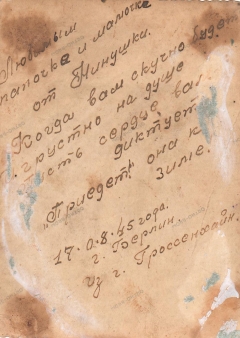 Любимым
папочке и мамочке
от Нинушки.
Когда вам скучно будет
и грустно на душе
Пусть сердце вам
диктует
"Приедет" она к
зиме.
17.08.45 года.
г. Берлин.
Из г. Гроссенхайн.